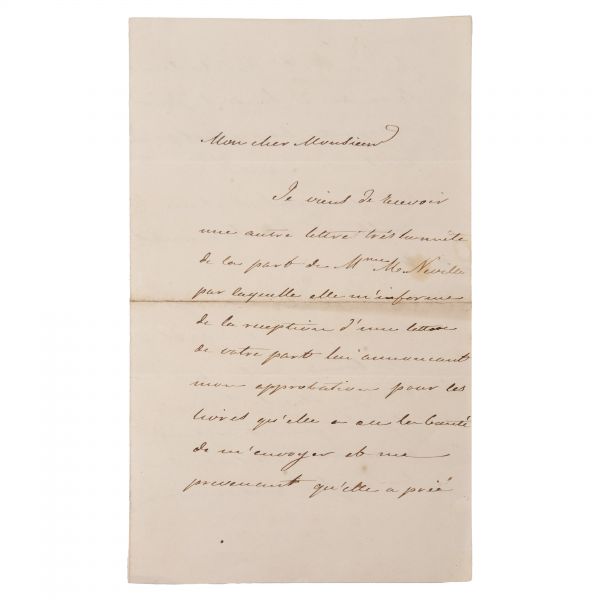 Mon cher Monsieur
Je viens de recevoir
une autre lettre très honnête
de la part de Mme M. Neville
par laquelle elle m'informe
de la reception d'une lettre
de votre part lui annoncant
mon approbation pour les
livres qu'elle a eu la bonté
de m'envoyer et me
prevenant qu'elle a prié